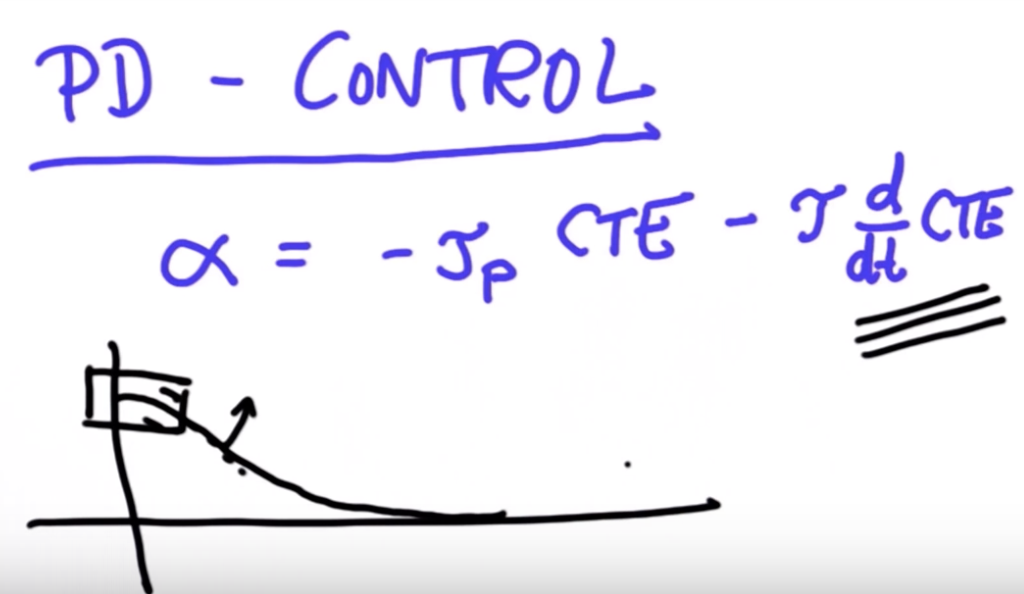 PD - CONTROL
α = - J_p CTE - J d/dt CTE